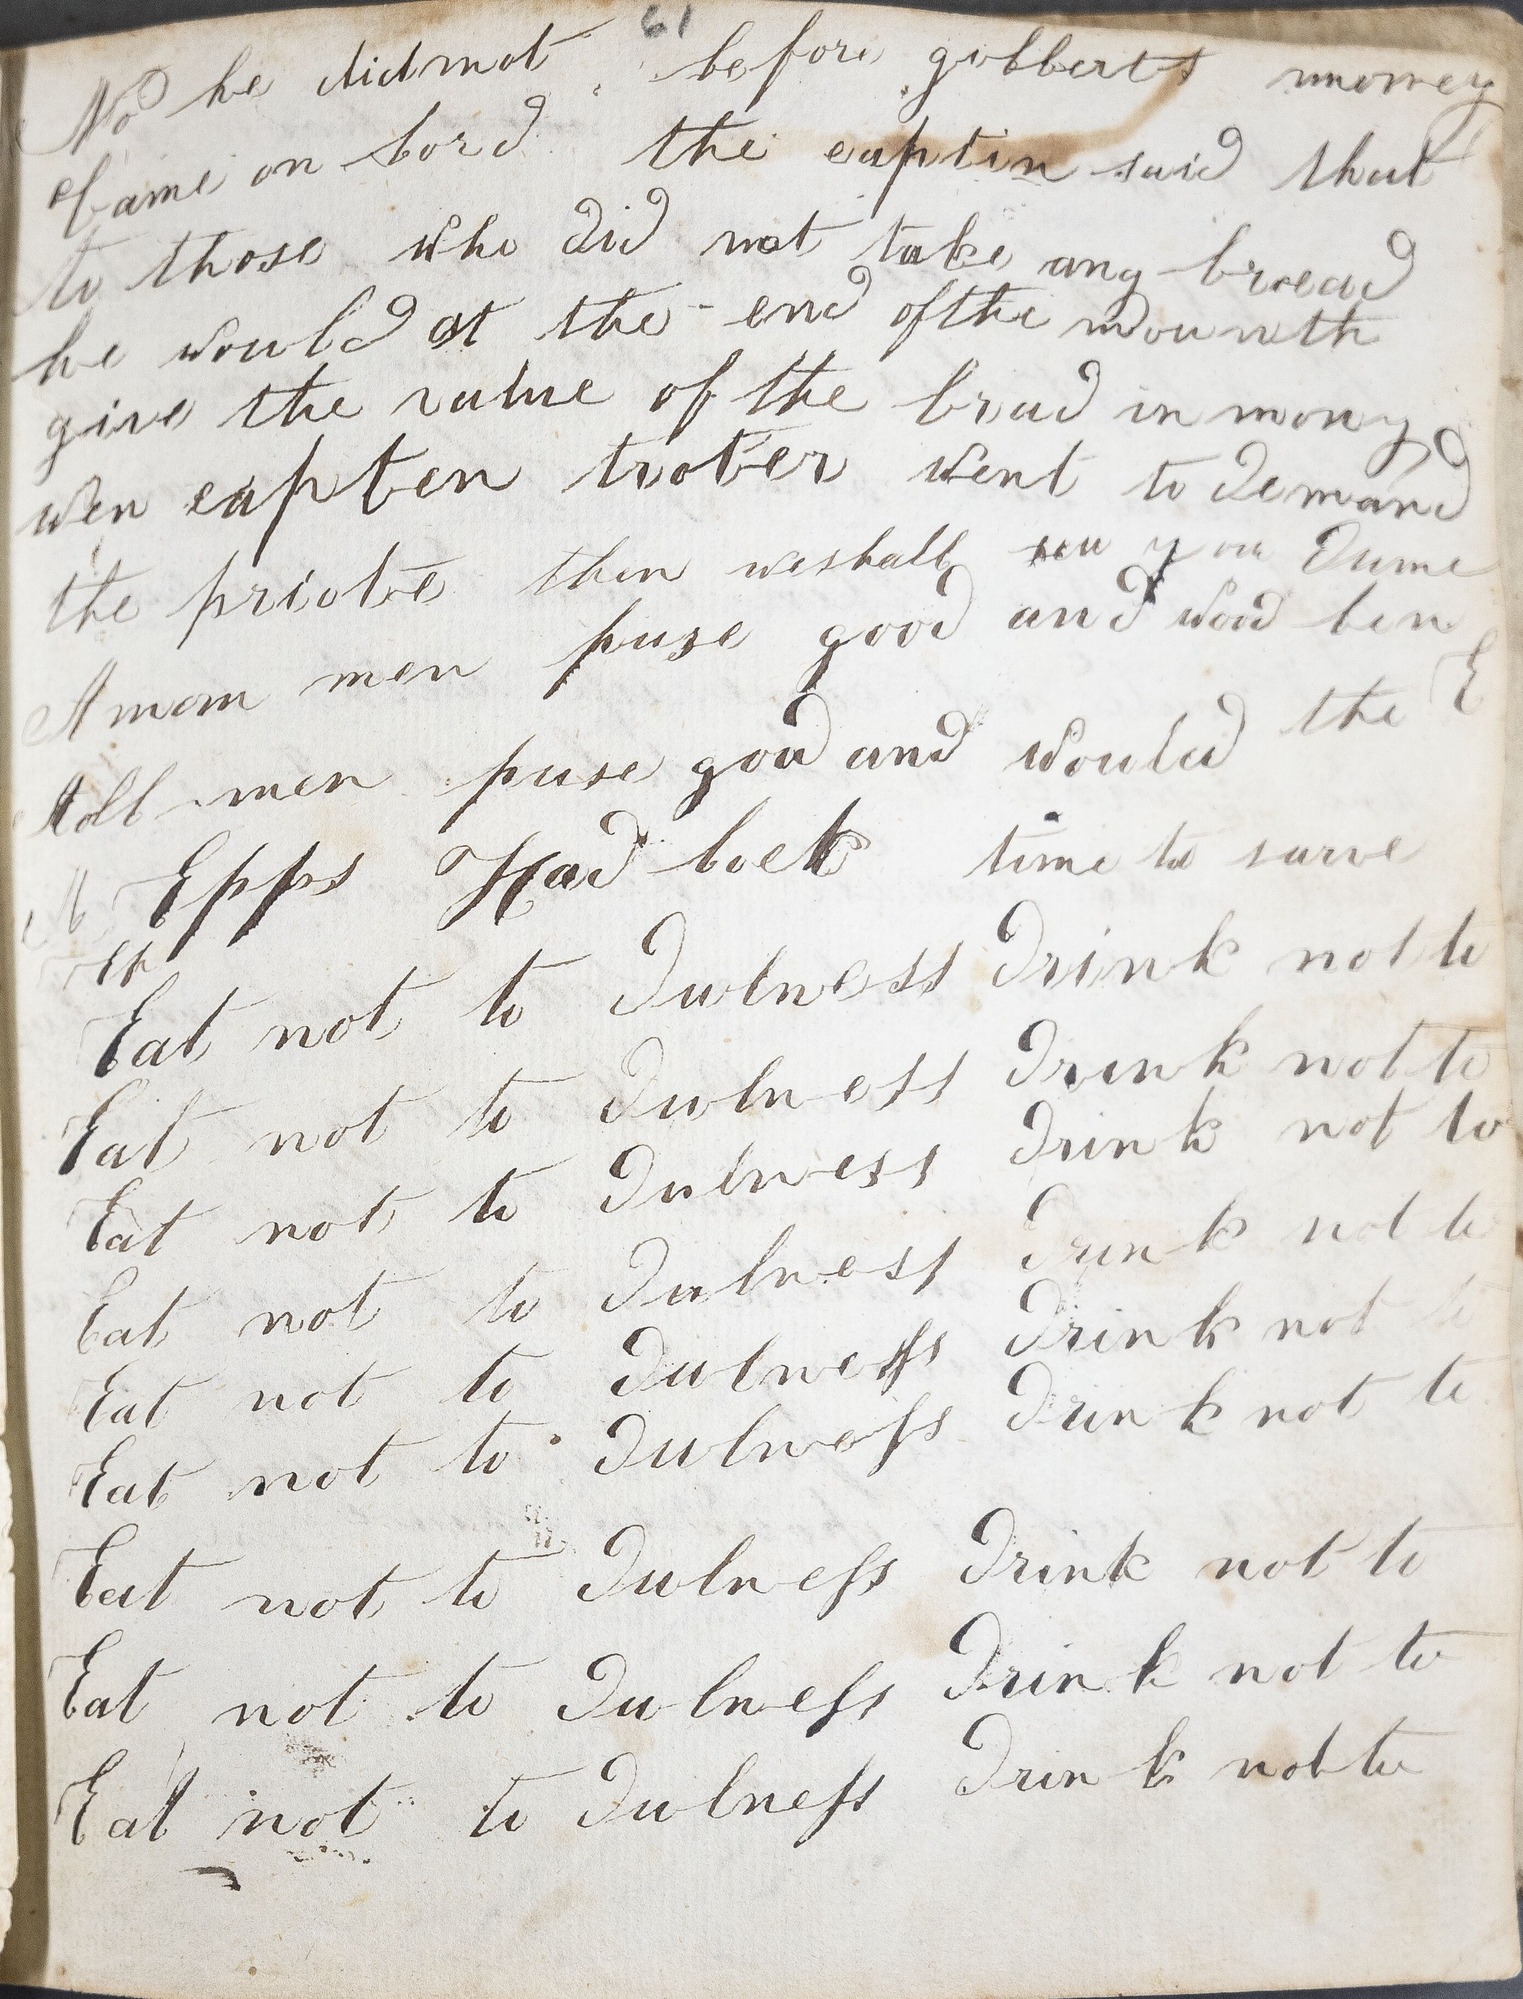 61
No he did not before gobberts mmoney
Came on bord the captin said that
to those who did not take any bread
he would at the end of the mounth
give the value of the brad in mony
wen capten troter went to demand
the privte then we shall see you dume
A mom men puse good and wod ben
Aoll men puse god and would the E
A Epps Had boek time to sarve
Ep
Eat not to dulness drink not to
Eat not to dulness drink not to
Eat not to dulness drink not to
Eat not to dulness drink not to
Eat not to dulness drink not to
Eat not to dulness drink not to
Eat not to dulness drink not to
Eat not to dulness drink not to
Eat not to dulness drink not to